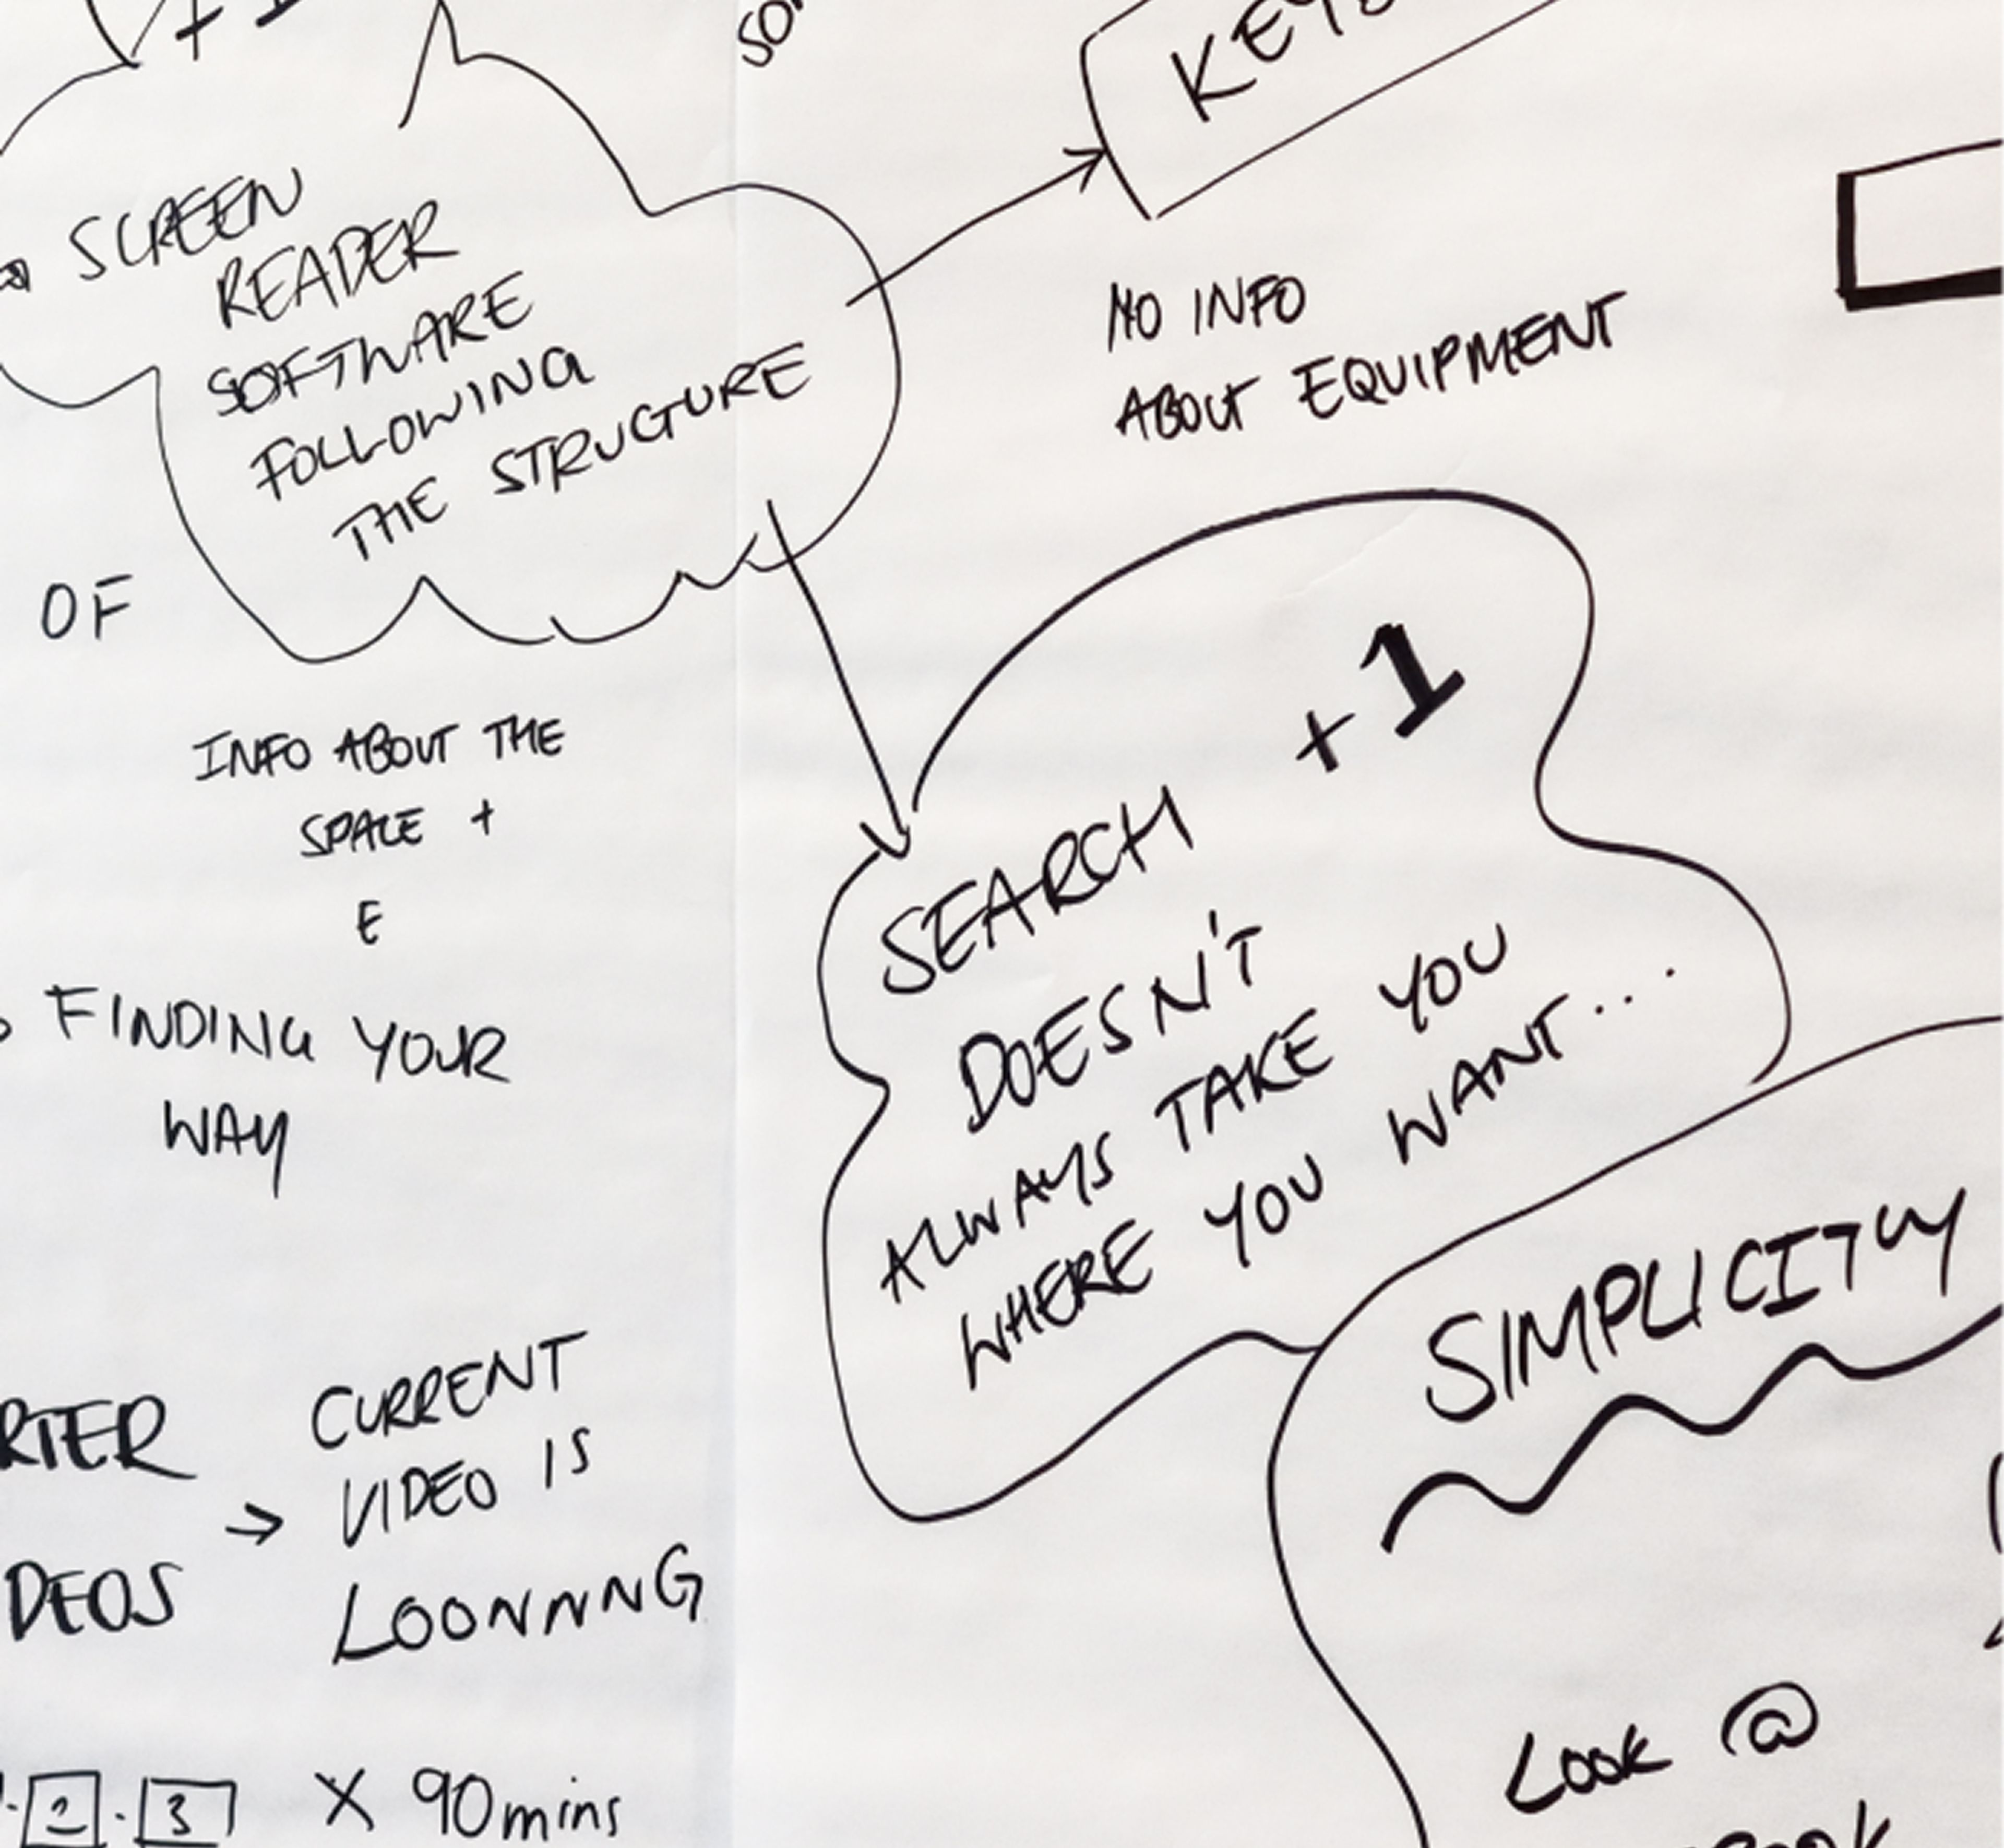 SCREEN
READER
SOFTWARE
FOLLOWING
THE STRUCTURE
NO INFO
ABOUT EQUIPMENT
OF
INFO ABOUT THE
SPACE +
E
FINDING YOUR
WAY
+1
SEARCH
DOESN'T
ALWAYS TAKE YOU
WHERE YOU WANT...
SIMPLICITY
CURRENT
VIDEO IS
LOONNNG
2 . 3 X 90mins
LOOK @